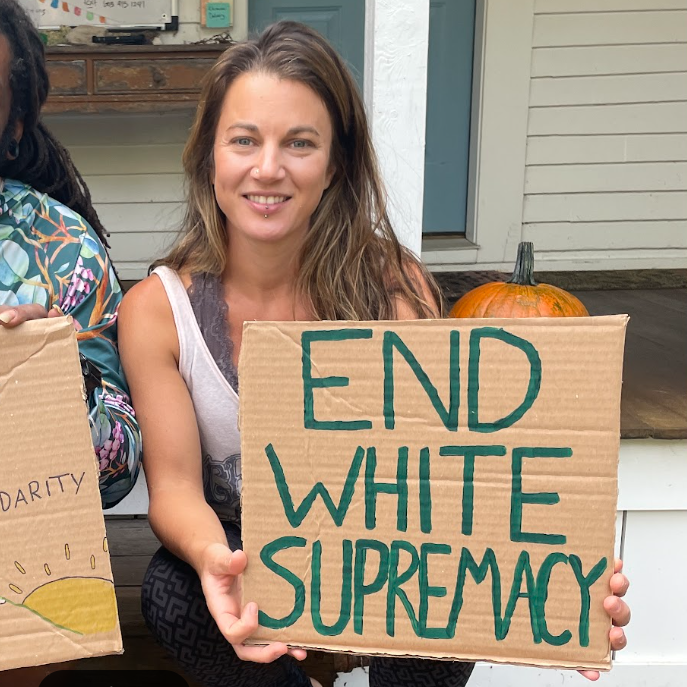 END
WHITE
SUPREMACY
DARITY